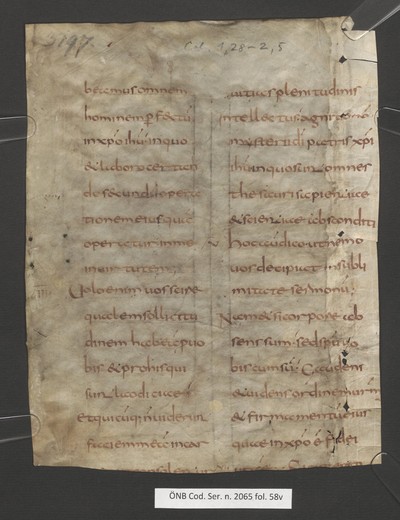 3197.
Col. 1,28–2,5
beamus omnem
hominem pfectū
in xpo ihu in quo
& laboro certan
do secundū opera
tionem eius quā
operatur in me
in uirtutem;
Uolo enim uos scire
qualem sollicitu
dinem habeā pro
bis & pro his qui
sun laodiciae
et quicūq; n uiderun
faciem meā in car
uitias plenitudinis
intellectus
mysterii di patris xpi
ihu in quo sun omnes
thesauri sapien&iae
& scien&iae absconditi
hoc audico ut nemo
uos decipiat in subli
mitate sermonū;
Nam & si corpore ab
sens sum sed spū uo
biscum sū; Gaudens
& uidens ordinem urm
& firmamentū eius
quae in xpo ē fidei
ÖNB Cod. Ser. n. 2065 fol. 58v